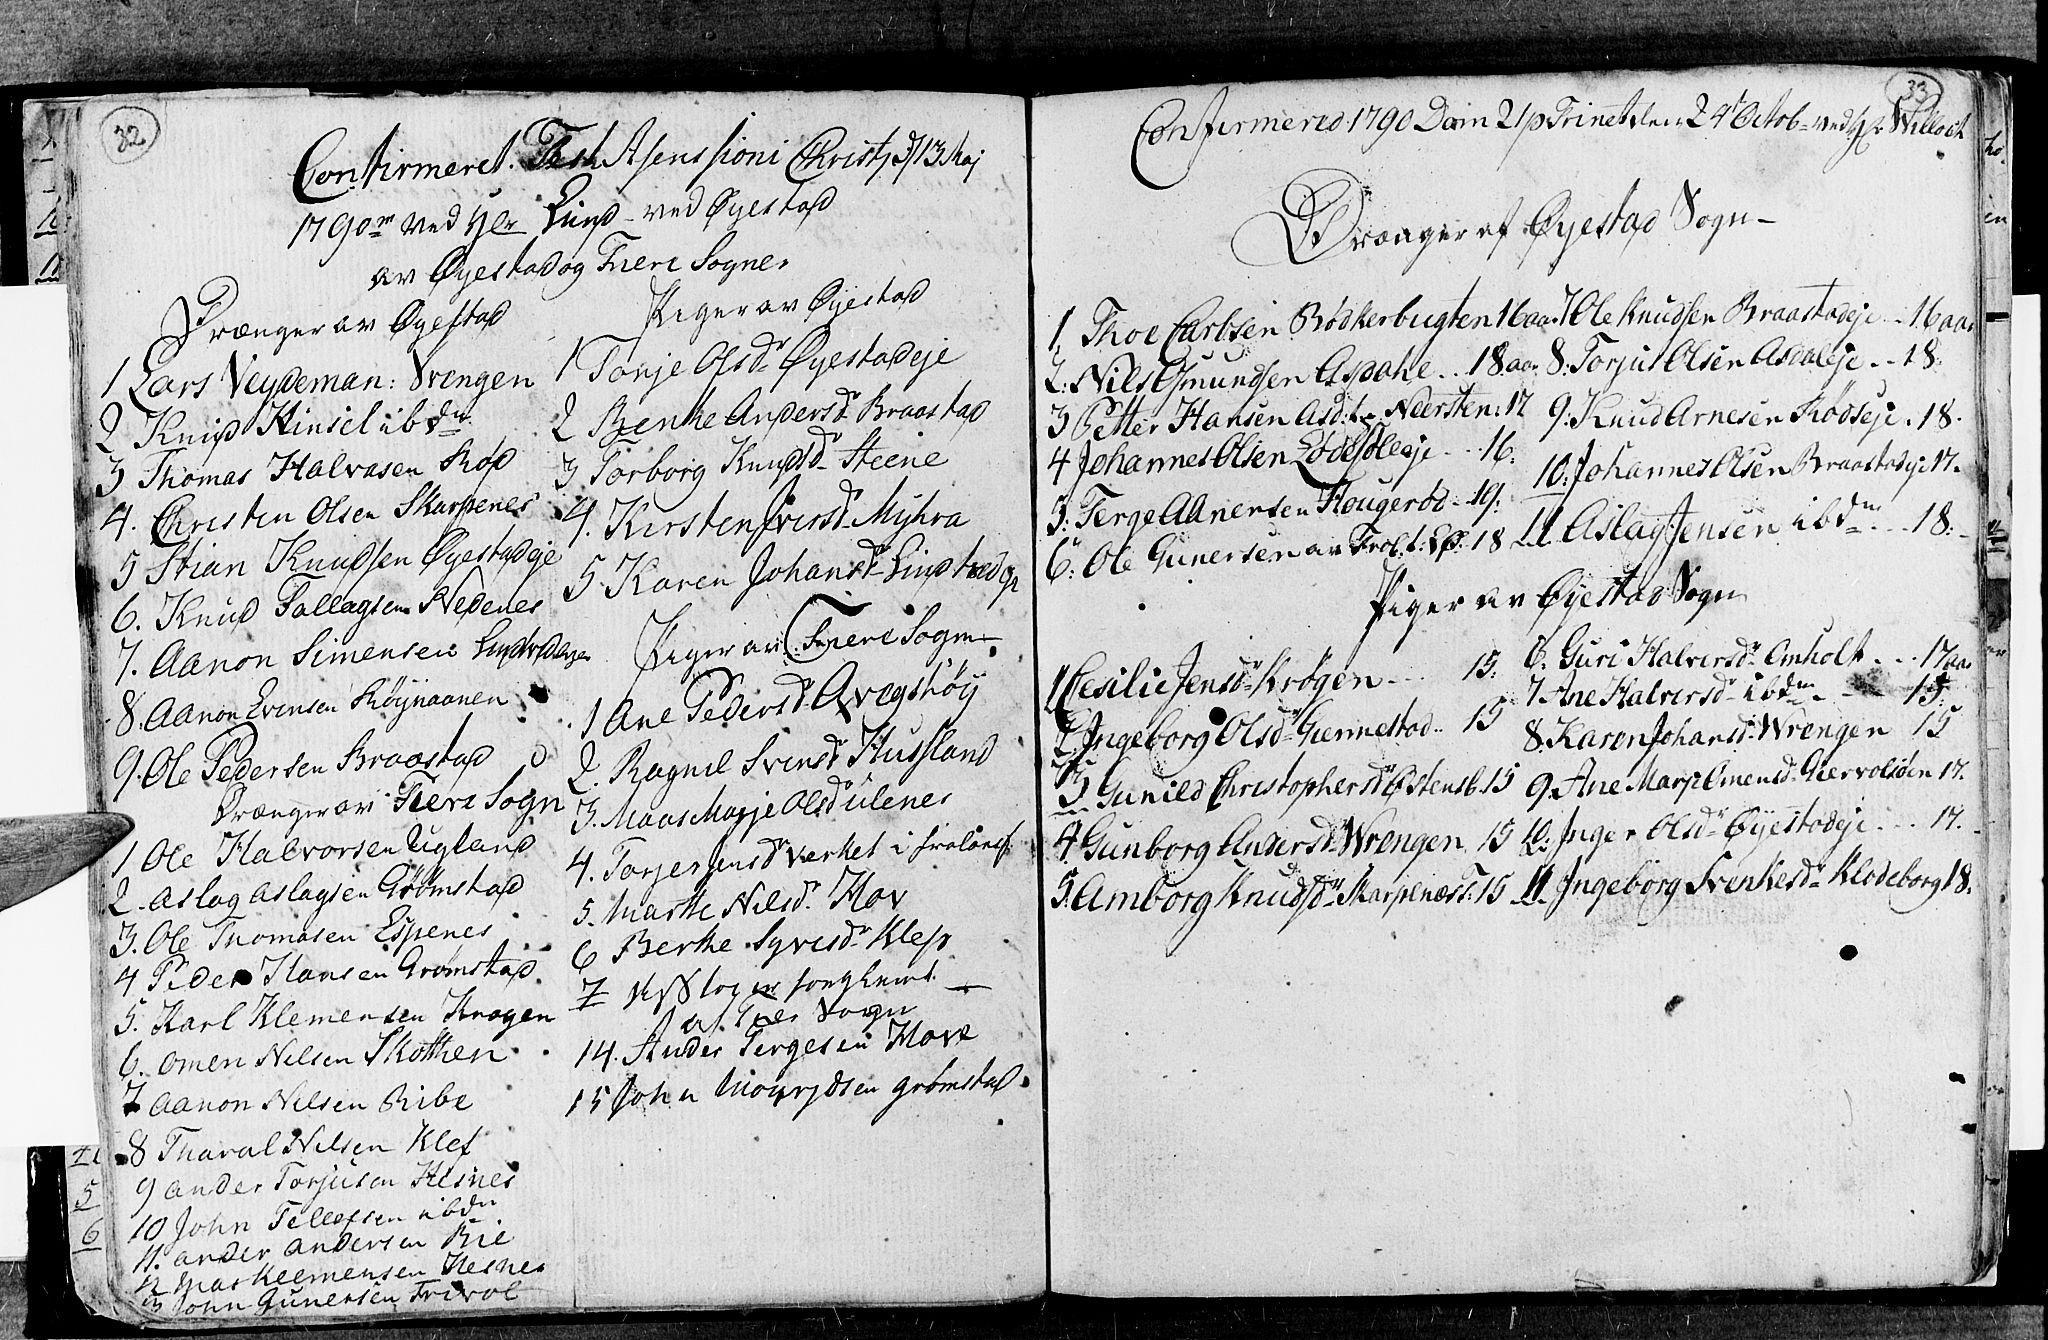 32
Confirmeret. Fest Asenssioni Christj d 13 Maj
1790 ved Hr Lind ved Øyestad
av Øyestad og Fiere Sogner
Drænger av Øyestad
1 Lars Veydeman: Vrengen
2 Knud Hinsel ibdm
3 Thomas Halvasen Rod
4. Christen Olsen Skarpenes
5 Stian Knudsen Øyestadeje
6. Knud Tallagsen Nedenes
7. Aanon Simensen
8. Aanon Evensen
9. Ole Pedersen Braastad
Drænger av Fiere Sogn
1 Ole Halvorsen Ugland
2. Aslag Aslagsen Grømstad
3. Ole Thomasen Espenes
4 Peder Hansen Gromstad
5. Karl Klemensen Krogen
6. Omen Nelsen Skotthen
7 Aanon Nelsen Ribe
8 Tharal Nelsen Klef
9 ander Torjusen Hesnes
10 John Tellefsen ibdm
11. ander andersen Bie
12 Klemensen Hesnes
13 John Gunersen Frivol
Piger av Øyestad
1 Tonje Olsdr Øyestadeje
2 Benthe Andersdr Braastad
3 Torborg Knudsdr Steene
4. Kirsten Iversdr Myhra
5. Karen Johansdr Lindtved
Piger av Fiere Sogn
1 Ane Pedersdr
2. Ragnil Svensdr Hussland
3. Maas Marje Olsdr Ulenes
4. Torjer Jensdr verket i froland
5. Marthe Nilsdr Hov
6 Berthe Syvesdr Klep
7
af Fier Sogn
14. Ander Tergesen Hove
15 John grømstad
33
Confirmered 1790 Dom 21 p Trinet den 24 Octob ved Hr Willock
Drænger af Øyestad Sogn
1 Thoe Carlsen Bødkerbugten 16 aar
2. Nils Gmundsen 18 aar
3 Petter Hansen 17
4 Johannes Olsen 16.
5. Terge Aanersen Hougerød 19.
6. Ole Gunersen av Frol. 18
7 Ole Knudsen Braastadeje 16 aar
8. Torjus Olsen Asdaleje 18.
9. Knud Arnesen Rødseje 18.
10. Johannes Olsen Braastadeje 17.
11. Aslag Jensen ibdm 18.
Piger av Øyestad Sogn
1 Cesilie Jensdr Krøgen 15.
2. Ingeborg Olsdr Giennestad 15
3. Gunild Christophersdr Østensb. 15
4. Gunborg Andersdr Wrengen 15
5. Amborg Knudsdr Skarpenæs 15
6. Guri Halversdr Omholt 17 aar
7 Ane Halversdr ibdm 15.
8. Karen Johansdr Wrengen 15
9. Ane Marj Omensdr Giervolsøen 17.
10. Inger Olsdr Øyestadeje 17.
11 Ingeborg Svenkesdr Klodeborg 18.